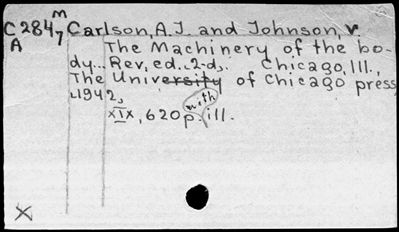 M
C2847 Carlson, A.J. and Johnson, V.
A
The Machinery of the bo-
dy... Rev. ed. 2-d. Chicago, Ill.,
The University of Chicago press
1942,
XIX, 620p. with ill.
X